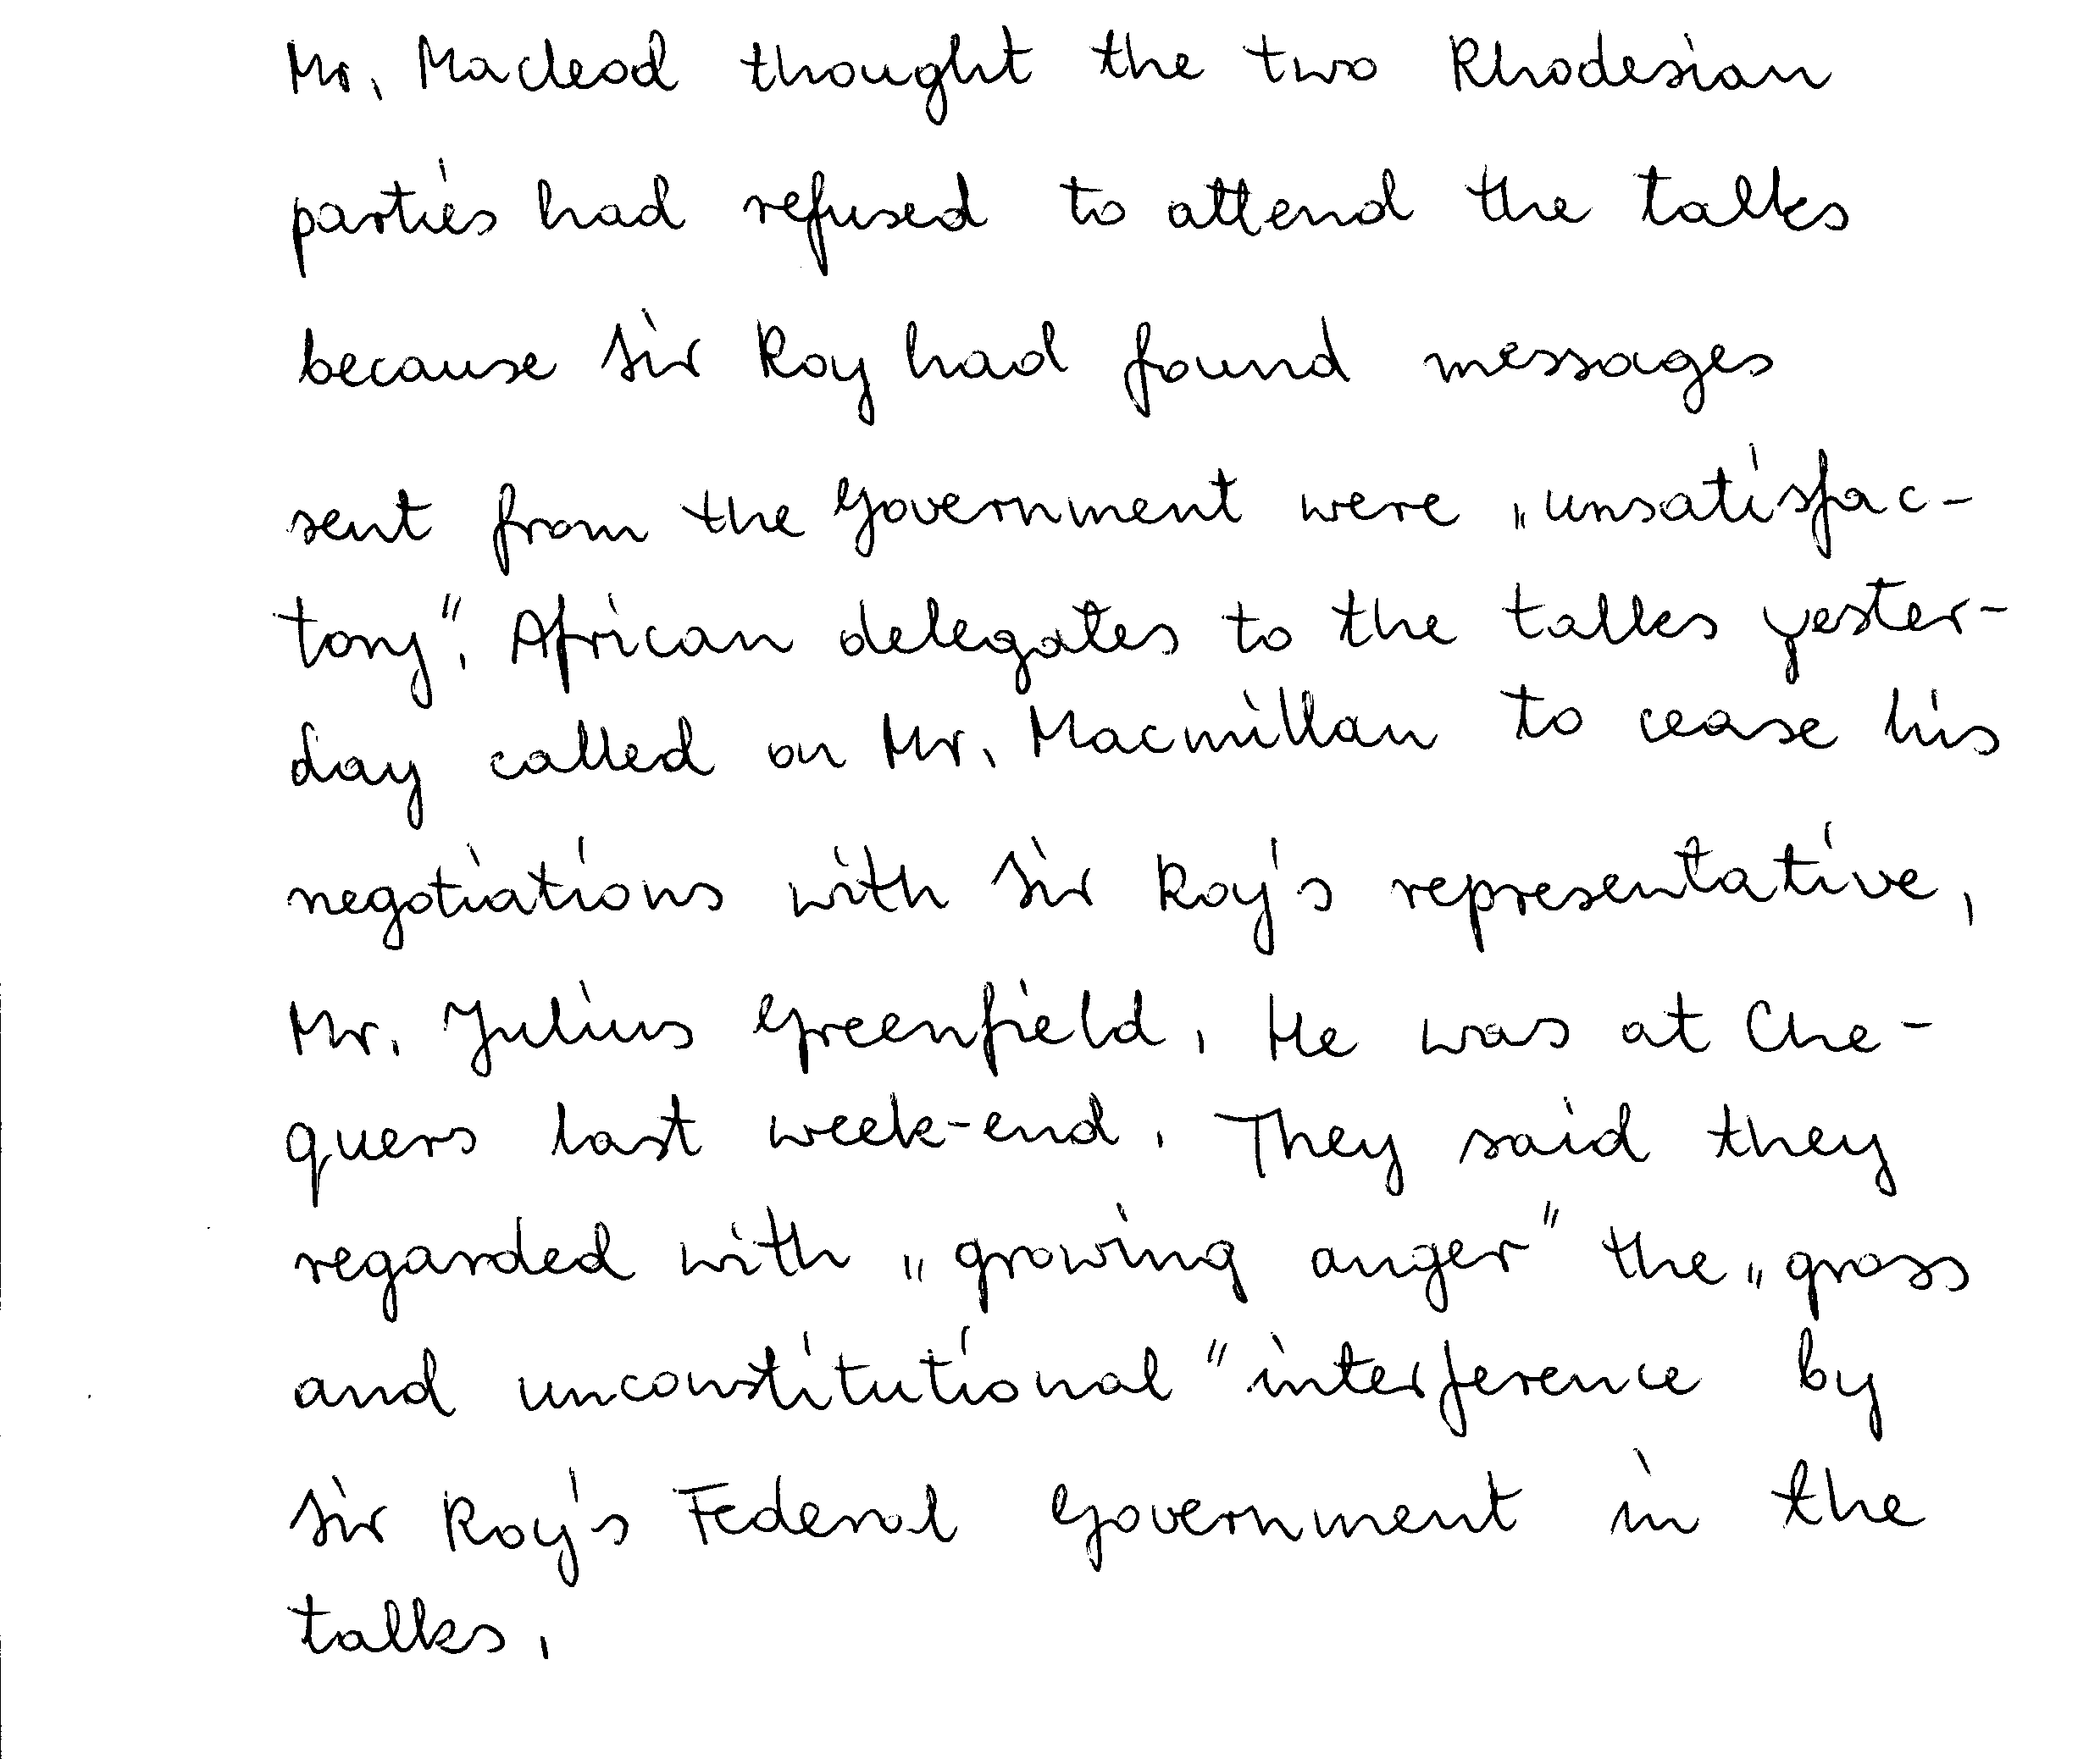 Mr. Macleod thought the two Rhodesian
parties had refused to attend the talks
because Sir Roy had found messages
sent from the Government were „unsatisfac-
tory". African delegates to the talks yester-
day called on Mr. Macmillan to cease his
negotiations with Sir Roy's representative,
Mr. Julius Greenfield. He was at Che-
quers last week-end. They said they
regarded with „growing anger" the „gross
and unconstitutional" interference by
Sir Roy's Federal Government in the
talks.